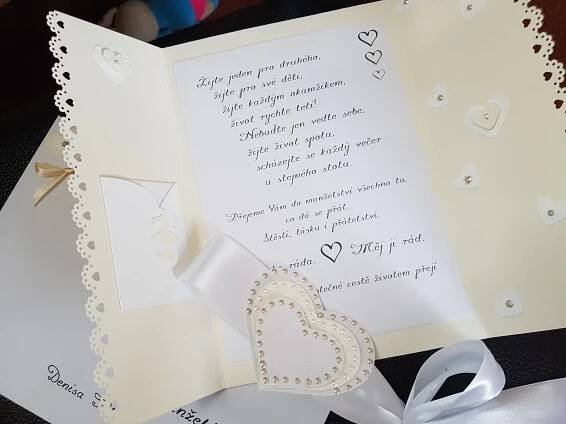 Žijte jeden pro druhého,
žijte pro své děti,
žijte každým okamžikem,
život rychle letí!
Nebuďte jen vedle sebe,
žijte život spolu,
scházejte se každý večer
u stejného stolu.
Přejeme Vám do manželství všechno to,
co dá se přát.
Štěstí, lásku i přátelství.
ráda. Měj ji rád.
cestě životem přejí
Denisa